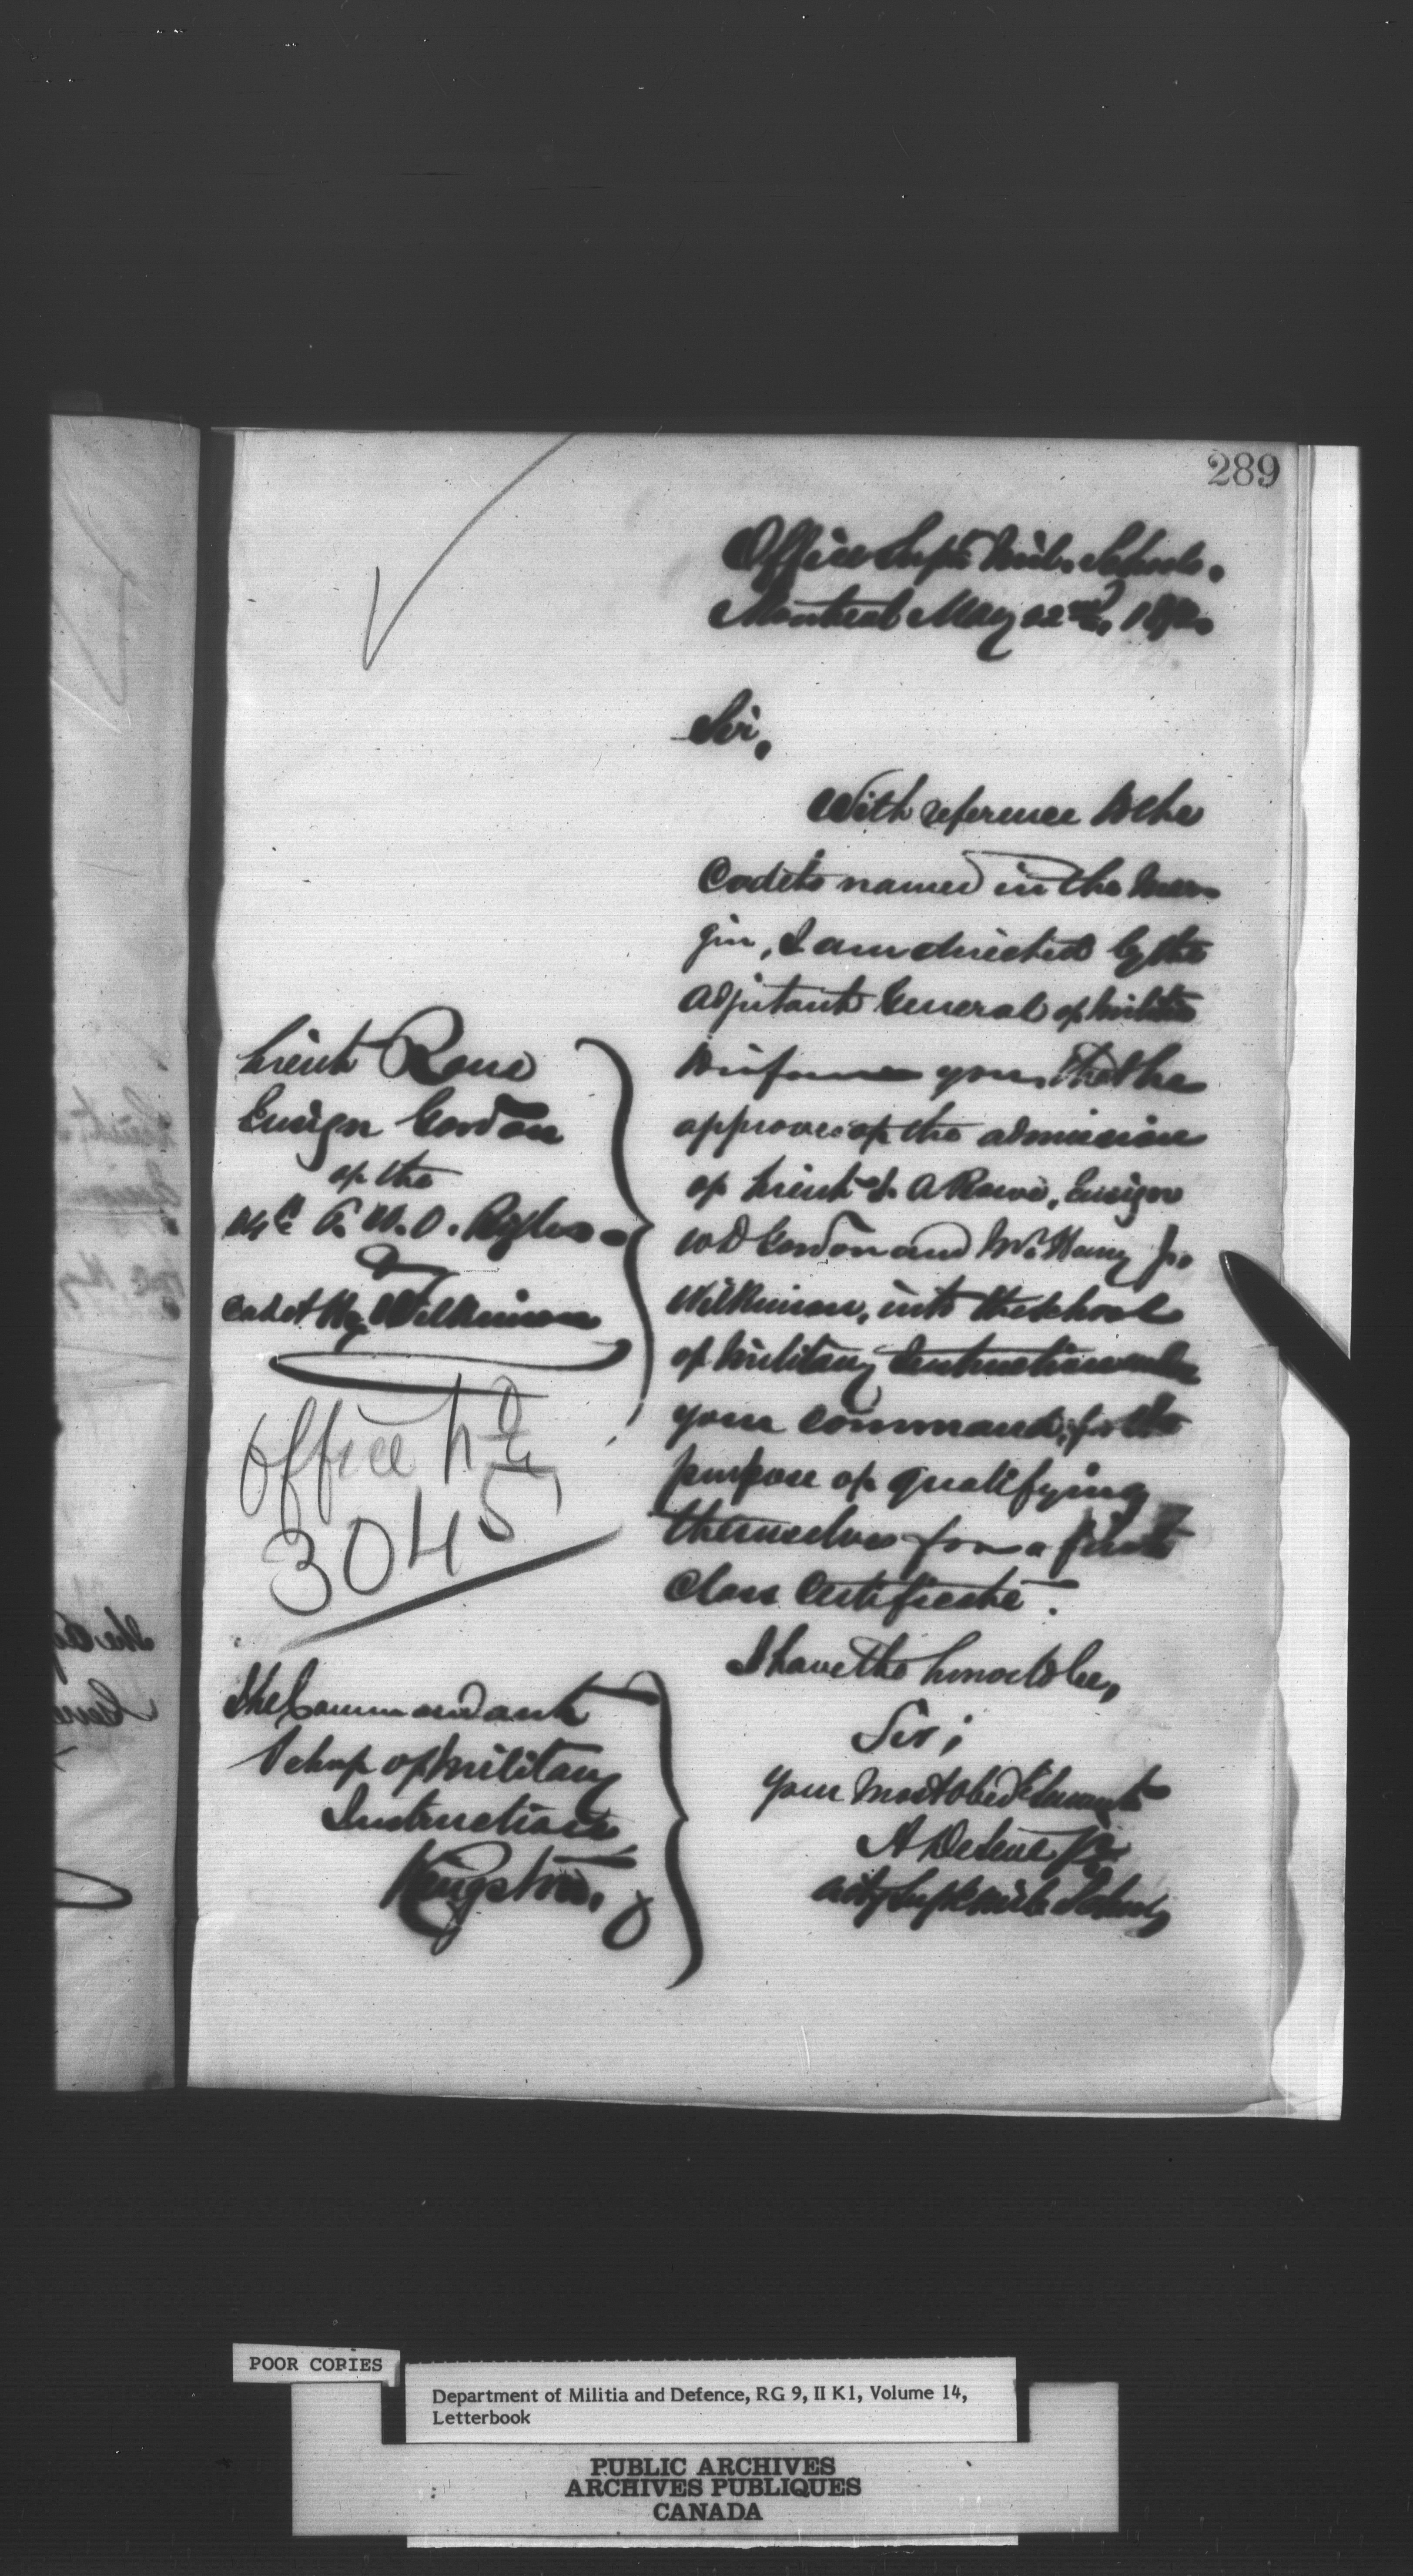 289
Office Supt Mil. Schools.
Montreal May 22nd, 187
Sir,
With reference to the
Cadets named in the mar
gin, I am directed by the
Adjutant General of Militia
to inform you, that he
approves of the admission
of Lieut A Rowe, Ensign
W D Gordon and Mr. Henry
Wilkinson, into the School
of Military Instruction under
your command, for the
purpose of qualifying
themselves for a first
Class Certificate.
I have the honor to be,
Sir,
Your most obedt Servant
A
actg Supt Mil Schools
Lieut Rowe
Ensign Gordon
of the
14th P. W. O. Rifles
&
Cadet Hy Wilkinson
Office No
3045
The Commandant
School of Military
Instruction
Kingston,
POOR COPIES
Department of Militia and Defence, RG 9, II K1, Volume 14,
Letterbook
PUBLIC ARCHIVES
ARCHIVES PUBLIQUES
CANADA